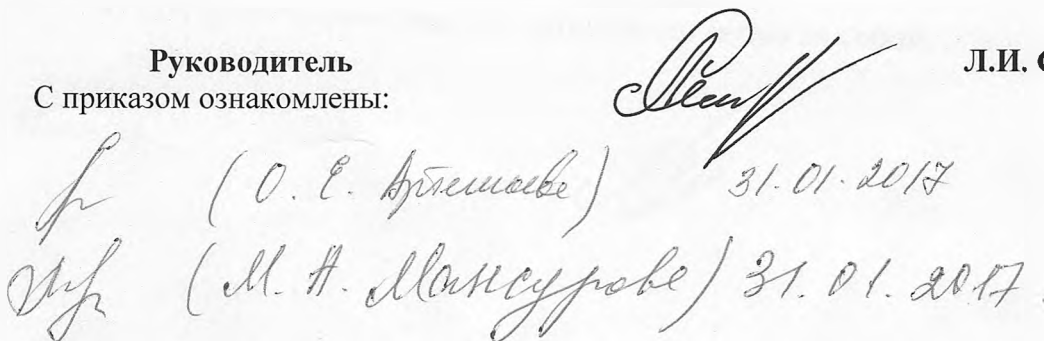 Руководитель Л.И.
С приказом ознакомлены:
(О. Е. Артемьева) 31.01.2017
(М. А. Мансурова) 31.01.2017